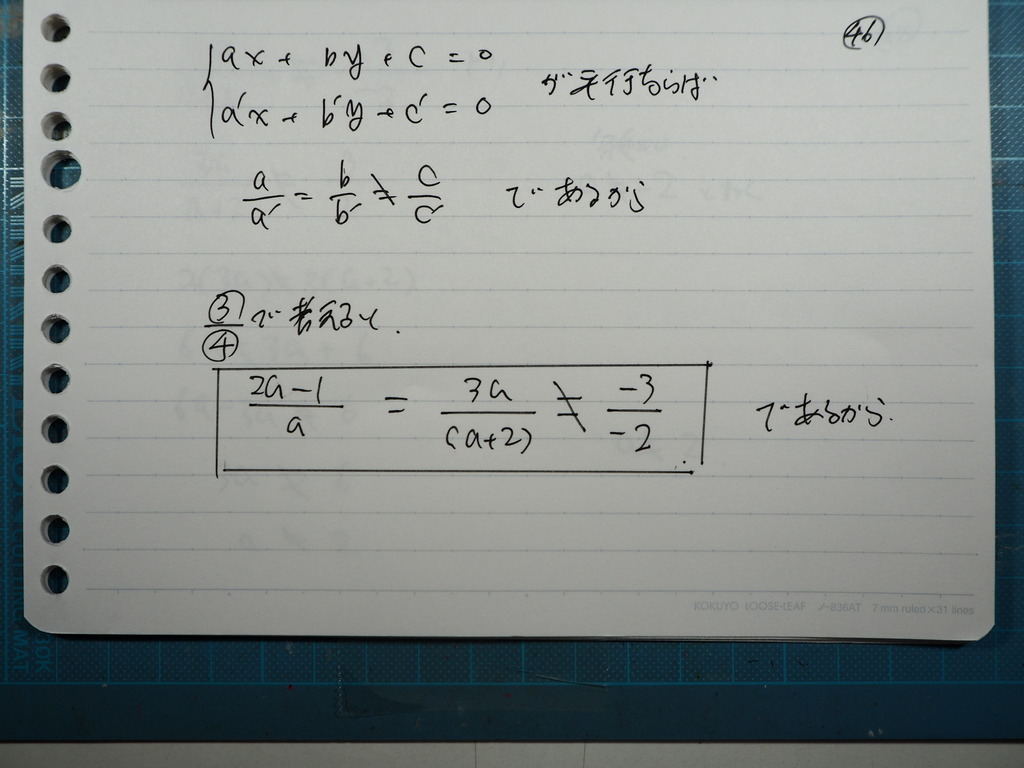 46
ax + by + c = 0
a'x + b'y + c' = 0
が平行ならば
a/a' = b/b' ≠ c/c' であるから
③/④で考えると.
(2a-1)/a = 3a/(a+2) ≠ -3/-2 であるから.
KOKUYO LOOSE-LEAF ノ-836AT 7 mm ruled×31 lines